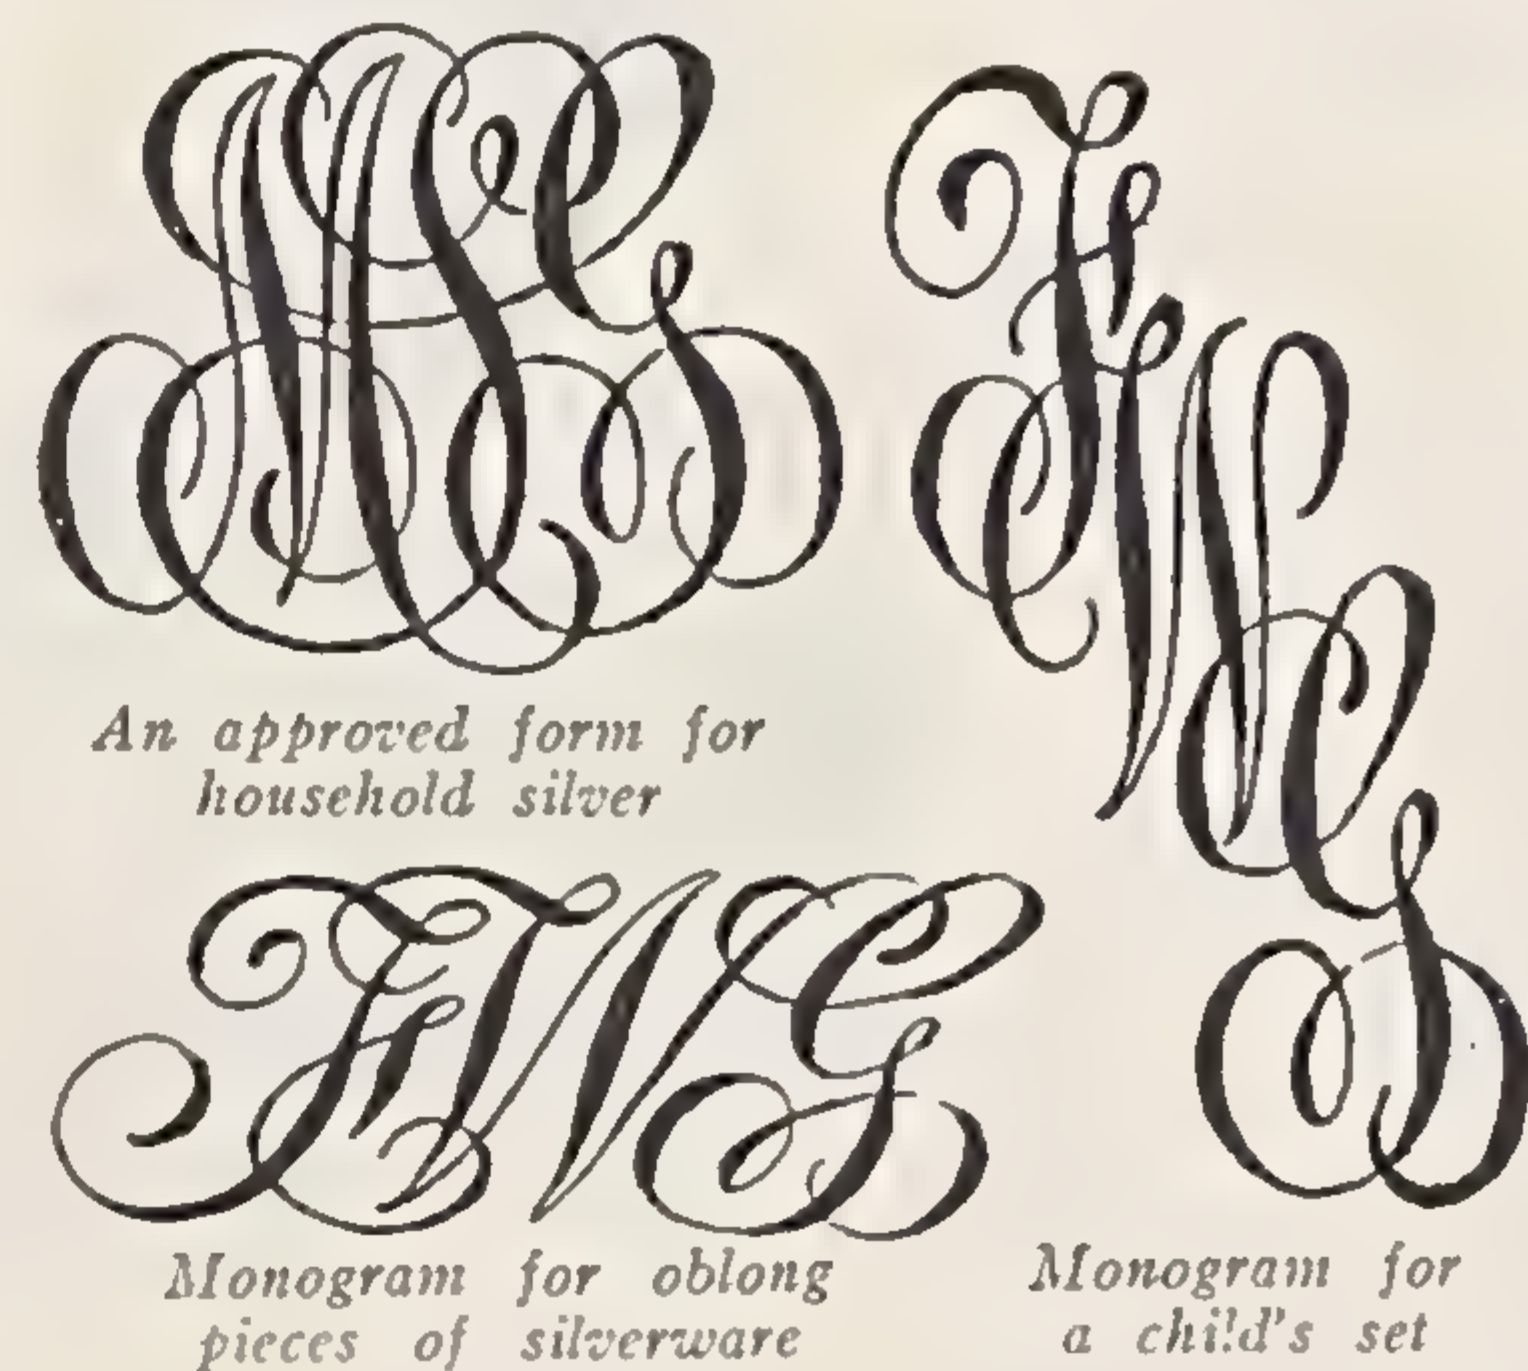 MSG
An approved form for
household silver
FWG
FWG
Monogram for oblong
pieces of silverware
Monogram for
a child's set